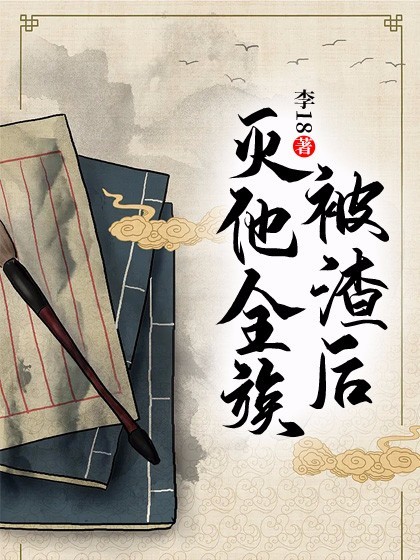 被渣后
灭他全族
李18著